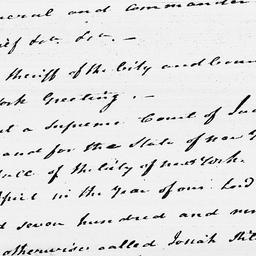 neral and Commander
ief &c. &c. —
Sheriff of the City and Coun
ork Greeting. —
at a Supreme Court of Jud
and for the State of new Y
Hall of the City of new York.
April in the Year of our Lord
d seven hundred and nin
otherwise called Josiah Phil